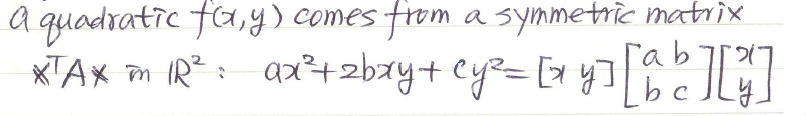 a quadratic f(x,y) comes from a symmetric matrix
xᵀAx in ℝ² : ax²+2bxy+cy² = [x y] [a b; b c] [x; y]